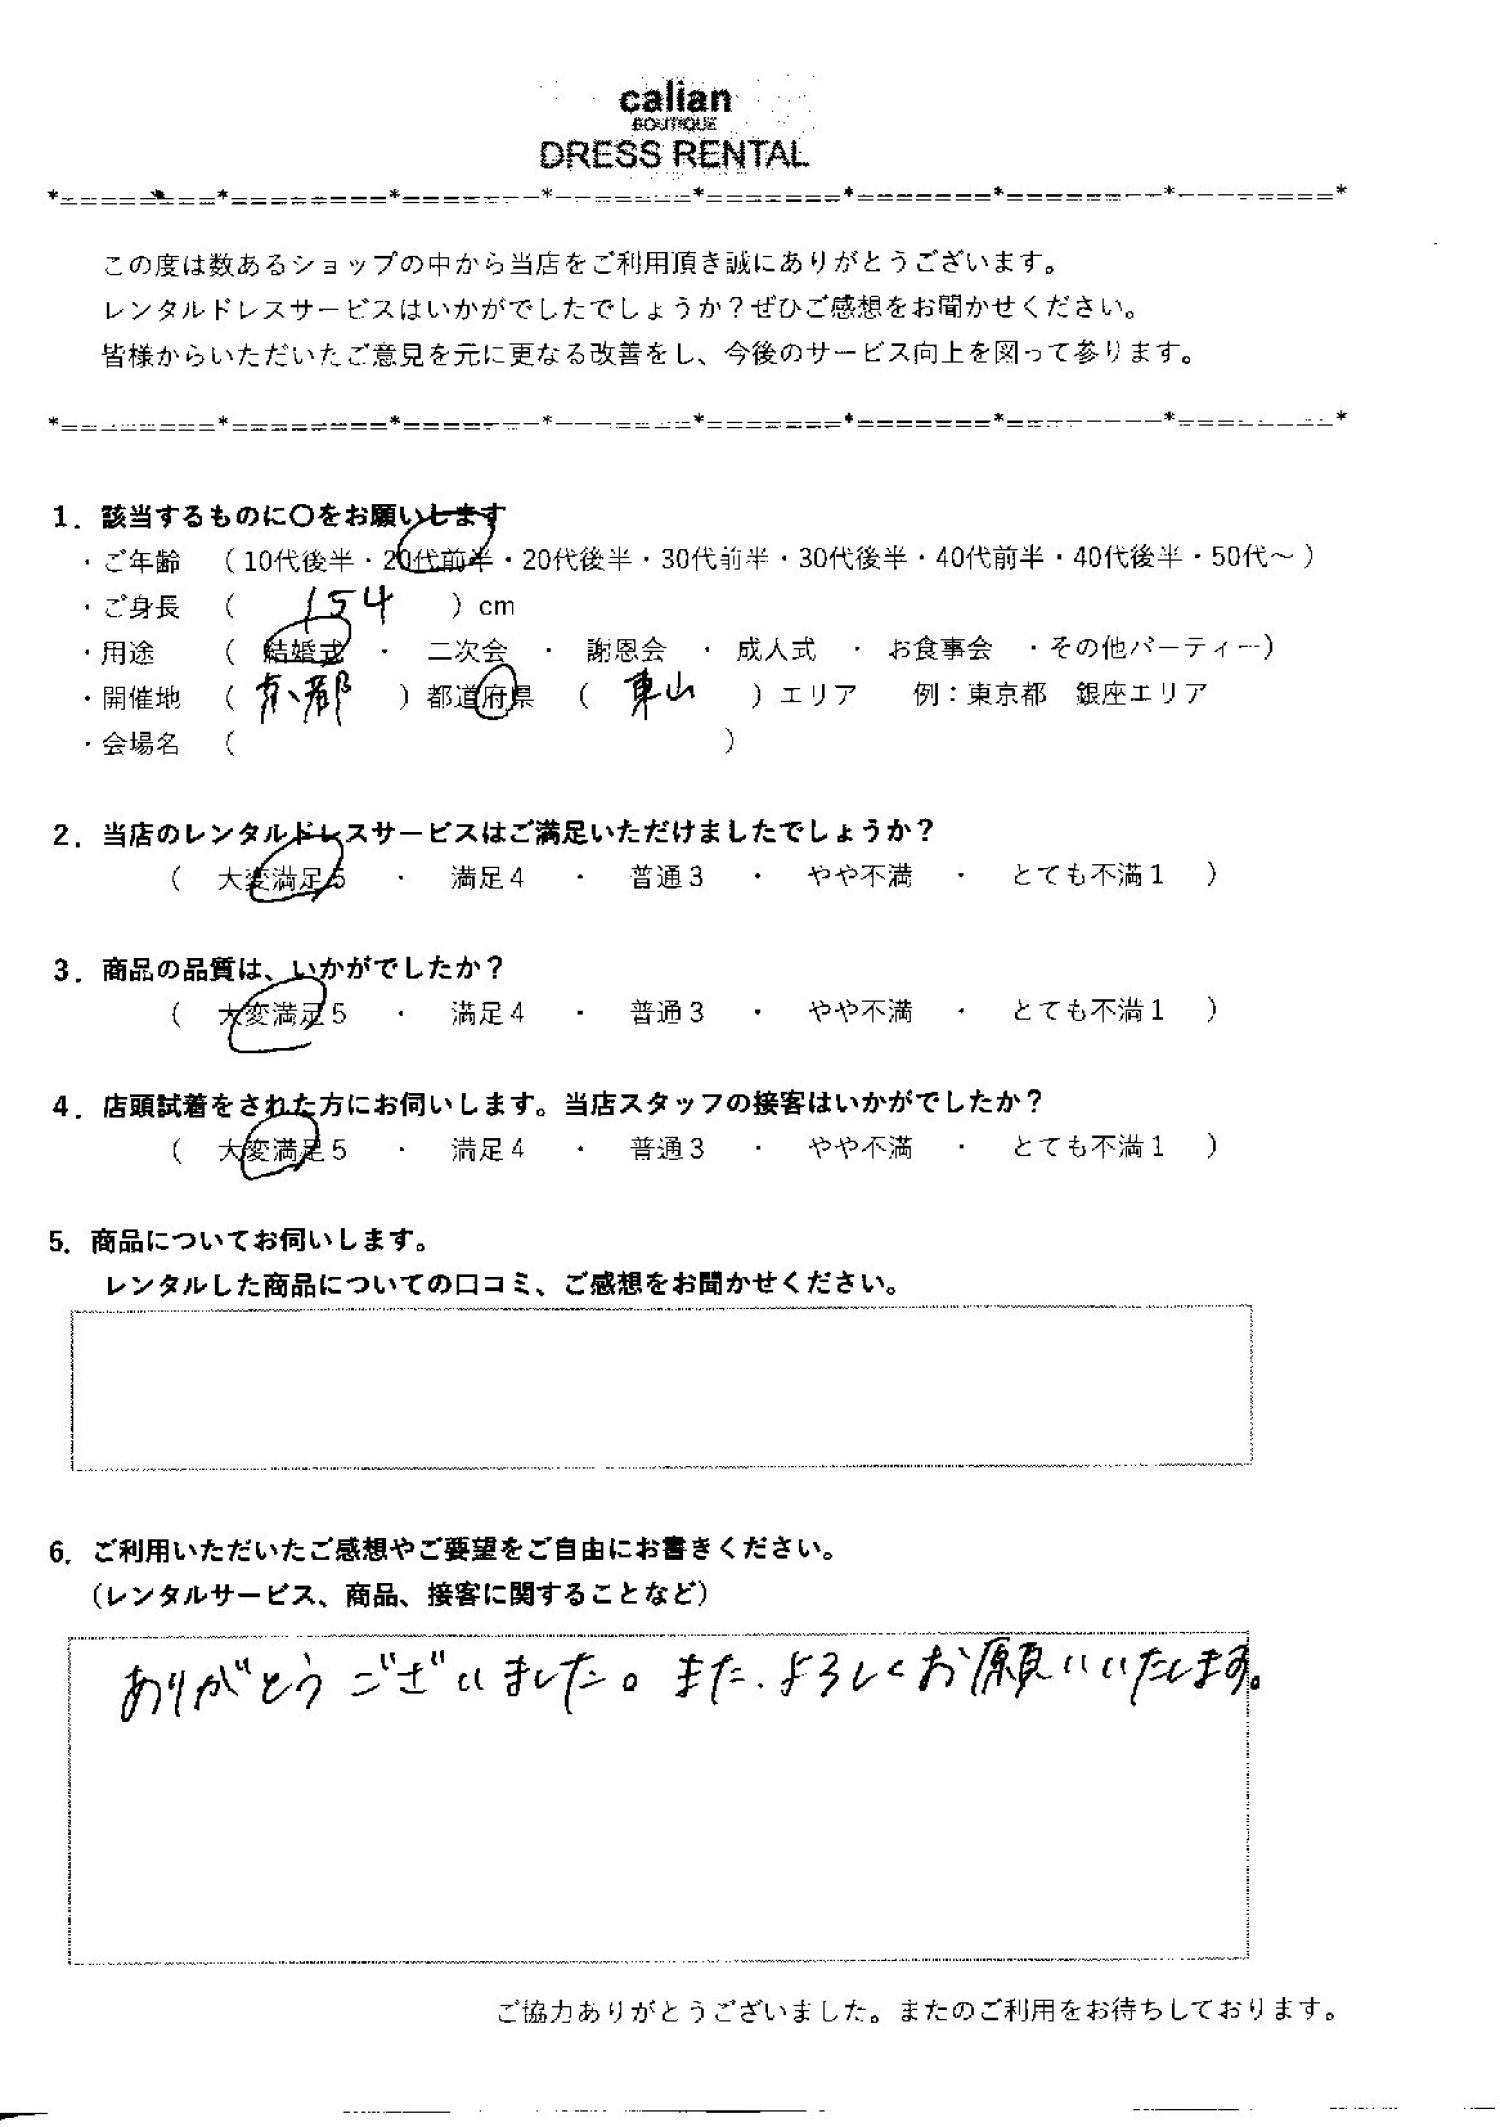 calian
BOUTIQUE
DRESS RENTAL
*=========*=========*========*========*========*========*=========*=========*
この度は数あるショップの中から当店をご利用頂き誠にありがとうございます。
レンタルドレスサービスはいかがでしたでしょうか？ぜひご感想をお聞かせください。
皆様からいただいたご意見を元に更なる改善をし、今後のサービス向上を図って参ります。
*=========*=========*========*========*========*========*=========*=========*
1．該当するものに〇をお願いします
・ご年齢 （10代後半・20代前半・20代後半・30代前半・30代後半・40代前半・40代後半・50代～）
・ご身長 （ 154 ）cm
・用途 （ 結婚式 ・ 二次会 ・ 謝恩会 ・ 成人式 ・ お食事会 ・その他パーティー）
・開催地 （ 京都 ）都道府県 （ 東山 ）エリア 例：東京都 銀座エリア
・会場名 （ ）
2．当店のレンタルドレスサービスはご満足いただけましたでしょうか？
（ 大変満足5 ・ 満足4 ・ 普通3 ・ やや不満 ・ とても不満1 ）
3．商品の品質は、いかがでしたか？
（ 大変満足5 ・ 満足4 ・ 普通3 ・ やや不満 ・ とても不満1 ）
4．店頭試着をされた方にお伺いします。当店スタッフの接客はいかがでしたか？
（ 大変満足5 ・ 満足4 ・ 普通3 ・ やや不満 ・ とても不満1 ）
5．商品についてお伺いします。
レンタルした商品についての口コミ、ご感想をお聞かせください。
6．ご利用いただいたご感想やご要望をご自由にお書きください。
（レンタルサービス、商品、接客に関することなど）
ありがとうございました。また、よろしくお願いいたします。
ご協力ありがとうございました。またのご利用をお待ちしております。